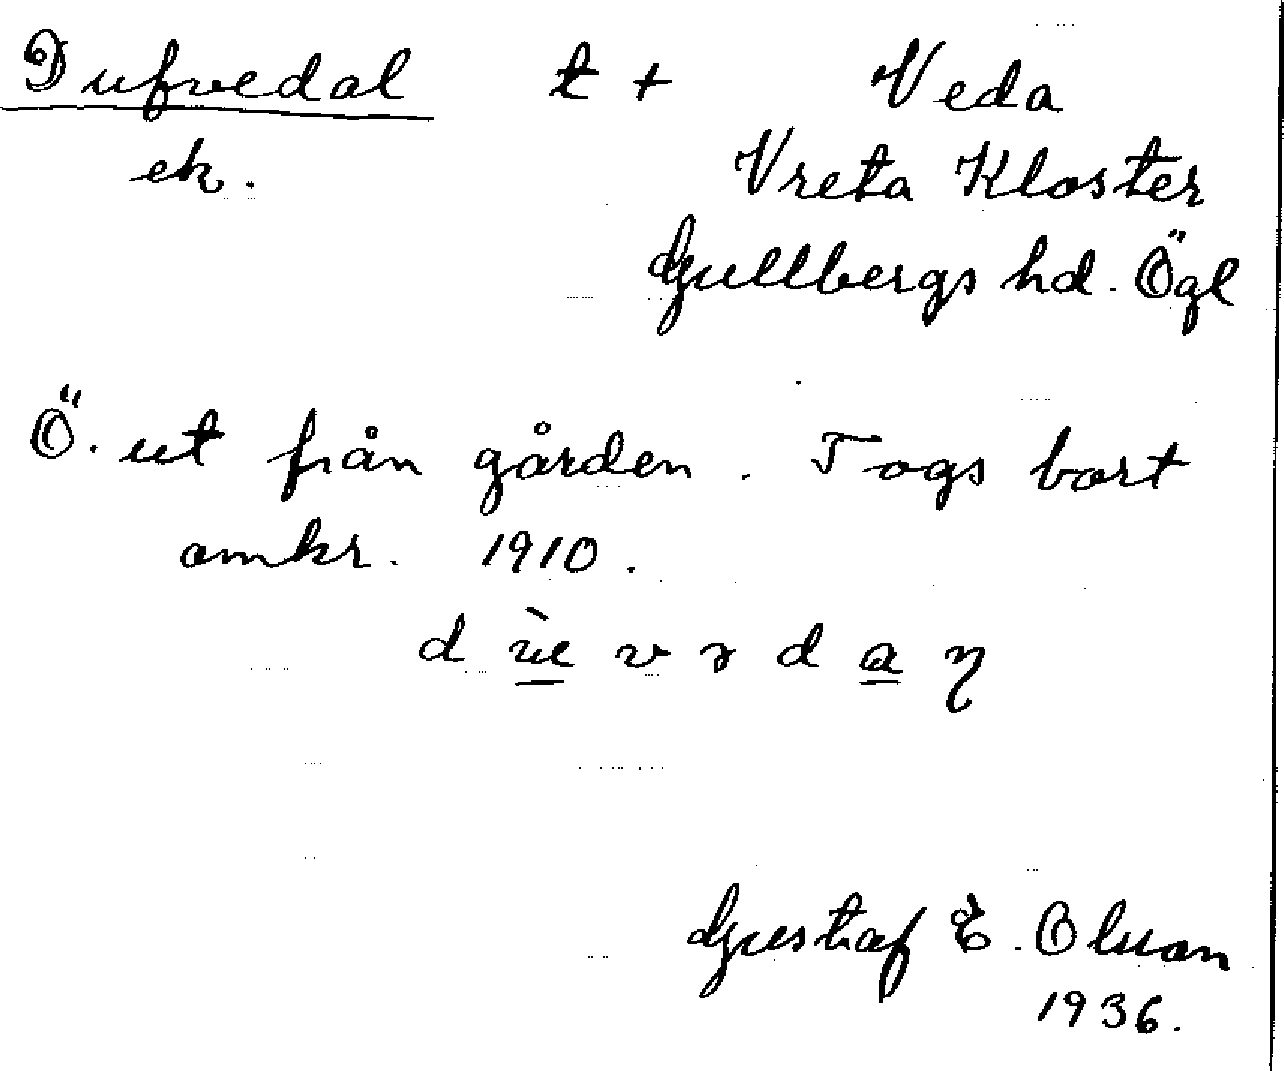 Dufvedal t + Veda
ek. Vreta Kloster
Gullbergs hd. Ögl
Ö. ut från gården. Togs bort
omkr. 1910.
Gustaf E. Olson
1936.